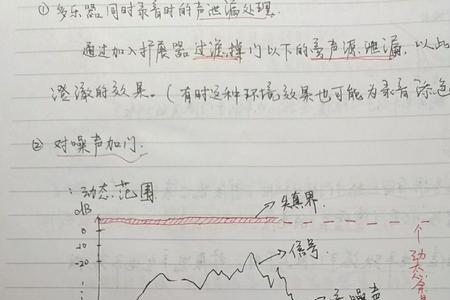 ① 多乐器同时录音时的声泄漏处理.
通过加入扩展器过滤掉门以下的 声源泄漏, 以达
澄澈的效果。(有时这种环境效果也可能为录音添色
② 对噪声加门.
动态范围.
dB
失真界.
0
-10
信号.
-20
噪声
个动态